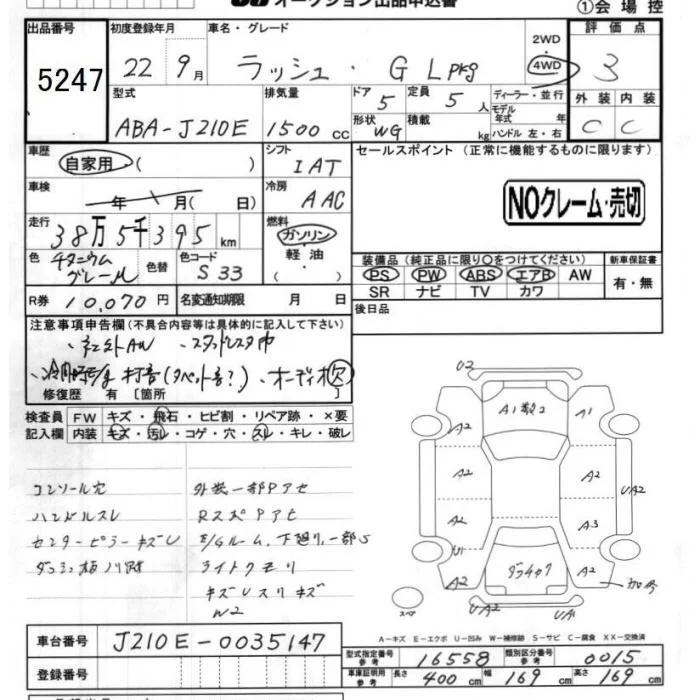 オークション出品申込書
①会場控
出品番号
5247
初度登録年月
22年 9月
車名・グレード
ラッシュ・G L Pkg
2WD
4WD
評価点
3
型式
ABA-J210E
排気量
1500 CC
ドア
5
定員
5人
形状
WG
積載
kg
ディーラー・並行
モデル
年式 年
ハンドル 左・右
外装
C
内装
C
車歴
自家用 ( )
シフト
IAT
セールスポイント (正常に機能するものに限ります)
車検
年 月( 日)
冷房
AAC
NOクレーム・売切
走行
38万5千395km
燃料
ガソリン
軽油
( )
色
チタニウム
グレーM
色替
色コード
S33
装備品 (純正品に限り○をつけてください)
PS PW ABS エアB AW
SR ナビ TV カワ
新車保証書
有・無
R券 10,070円
名変通知期限 月 日
後日品
注意事項申告欄(不具合内容等は具体的に記入して下さい)
・スタットレス
打音(タペット音?)・オーディオ欠
修復歴 有 [箇所 ]
検査員
記入欄
FW キズ・飛石・ヒビ割・リペア跡・×要
内装 キズ・汚レ・コゲ・穴・スレ・キレ・破レ
コンソール穴
ハンドルスレ
センターピラーキズU
外装一部Pアセ
RスポPアセ
E/Gルーム、下廻り、一部S
ライトクモリ
キズUスリキズ
W2
U2
A1 A2
A1
A2
A2
A2
A2
A3
UA2
U1
A2
A2
UA2
UA1
スペア
A-キズ E-エクボ U-凹み W-補修跡 S-サビ C-腐食 XX-交換済
車台番号
J210E-0035147
登録番号
型式指定番号
参考
16558
類別区分番号
参考
0015
車庫証明用
参考
長さ 400cm
幅 169cm
高さ 169cm